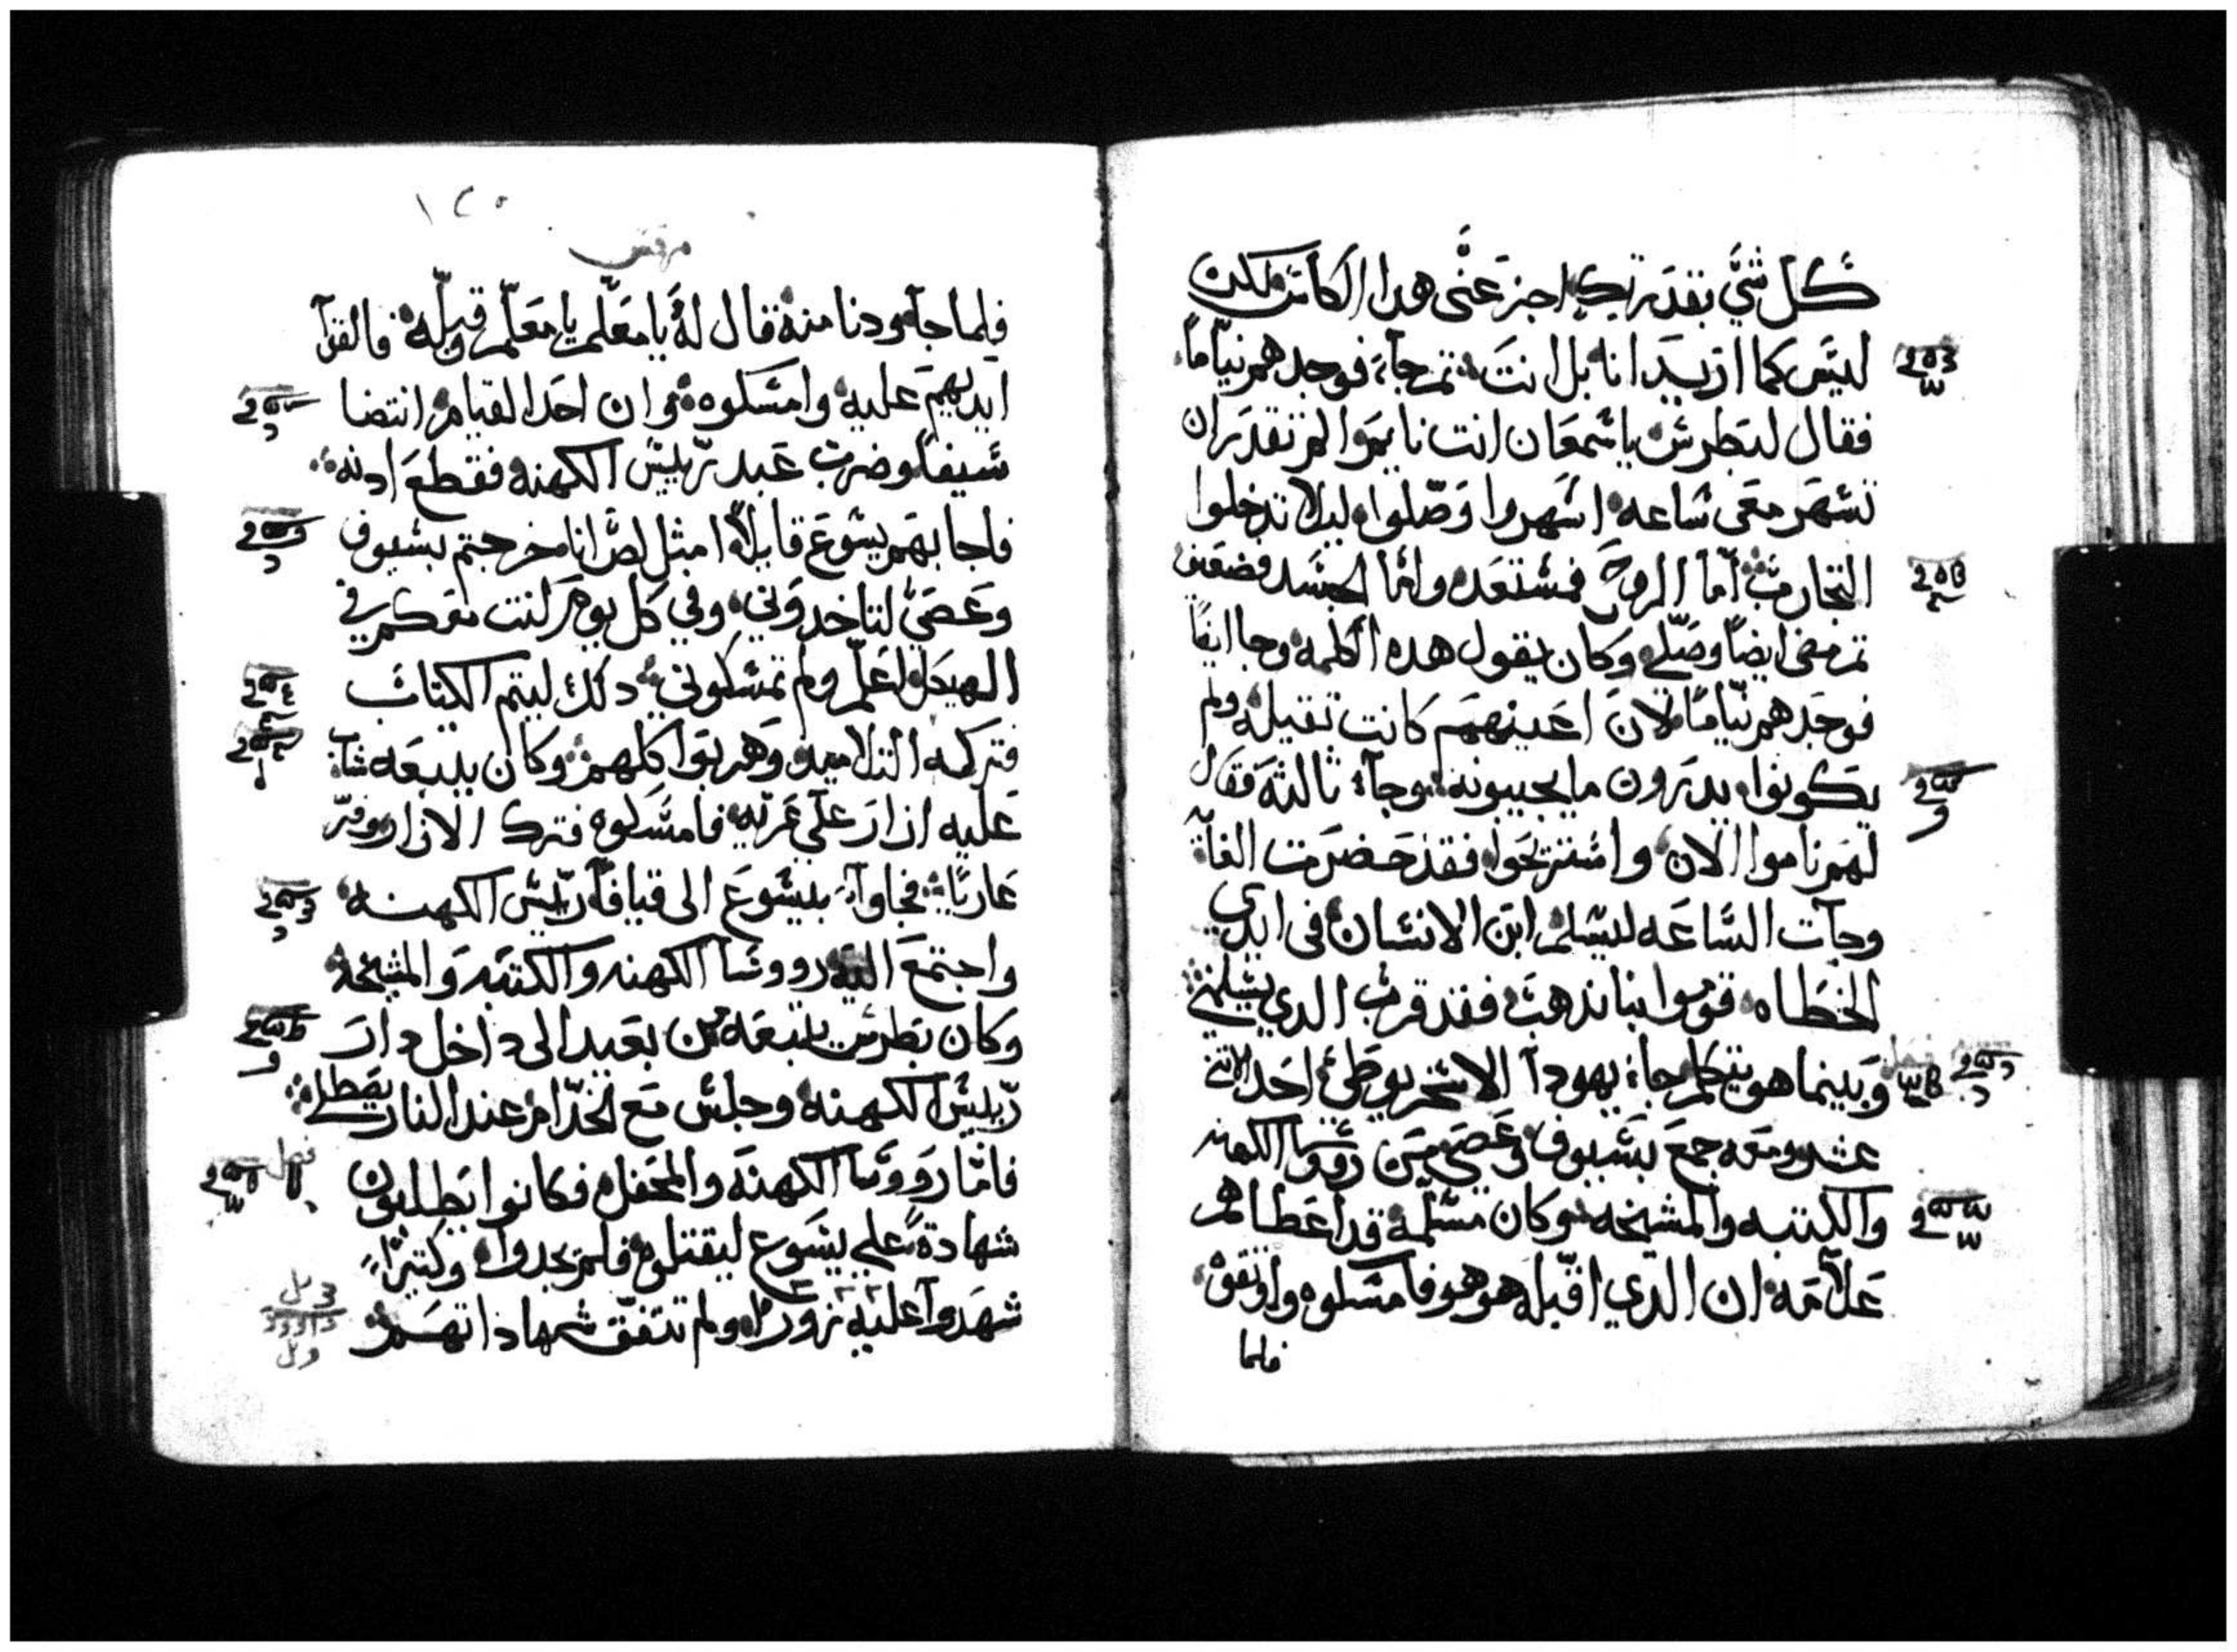 كل شي بقدرتك اجز عني هدا الكاس ولكن
ليس كما اريد انا بل انت ثم جآء فوجدهم نياماً
فقال لبطرس ياسمعان انت نايم والم تقدر ان
تسهر معي ساعه اسهروا وصلوا ليلا تدخلوا
التجارب اما الروح فمستعده واما الجسد فضعيف
ثم مضى ايضاً وصلي وكان يقول هده الكلمه وجا ايضا
فوجدهم نياماً لان اعينهم كانت تقيله ولم
يكونوا يدرون ما يجيبونه وجآء ثالثه فقال
لهم ناموا الان واستريحوا فقد حضرت الغآية
وجآت الساعه ليسلم ابن الانسان في ايدي
الخطاه قوموا بنا ندهب فقد قرب الدي يسلمني
وبينما هو يتكلم جاء يهودا الاسخريوطي احد الاتني
عشر ومعه جمع بسيوف وعصي من روسا الكهنه
والكتبه والمشيخه وكان مسلمه قد اعطاهم
علامه ان الدي اقبله هو هو فامسكوه واوتقوه
فلما
١٢٥
مرقس
فلما جآء ودنا منه قال له يا معلم يا معلم وقبله فالقوآ
ايديهم عليه وامسكوه وان احد القيام انتضا
سيفاً وضرب عبد رييس الكهنه فقطع ادنه
فاجابهم يسوع قايلاً امثل لص انا خرجتم بسيوف
وعصي لتاخدوني وفي كل يوم كنت معكم في
الهيكل اعلم ولم تمسكوني دلك ليتم الكتاب
فتركه التلاميد وهربوا كلهم وكان يتبعه شاب
عليه ازار علي عريه فامسكوه فترك الازار وفر
عاريًا فجاوآ بيسوع الى قيافآ رييس الكهنه
واجتمع اليه رووسا الكهنه والكتبه والمشيخه
وكان بطرس يتبعه من بعيد الى داخل دار
رييس الكهنه وجلس مع الخدام عند النار يصطلي
فاما رووسا الكهنه والمحفل فكانوا يطلبون
شهادة على يسوع ليقتلوه فلم يجدوا وكتيرًا
شهدوآ عليه زوراً ولم تتفق شهاداتهم